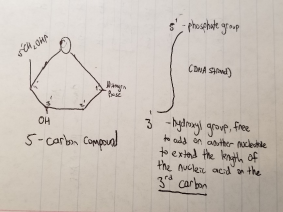 5' CH₂OHP
1'
Nitrogen
Base
3'
2'
OH
5-carbon compound
5' - phosphate group
(DNA strand)
3'
- hydroxyl group, free
to add on another nucleotide
to extend the length of
the nucleic acid on the
3rd carbon